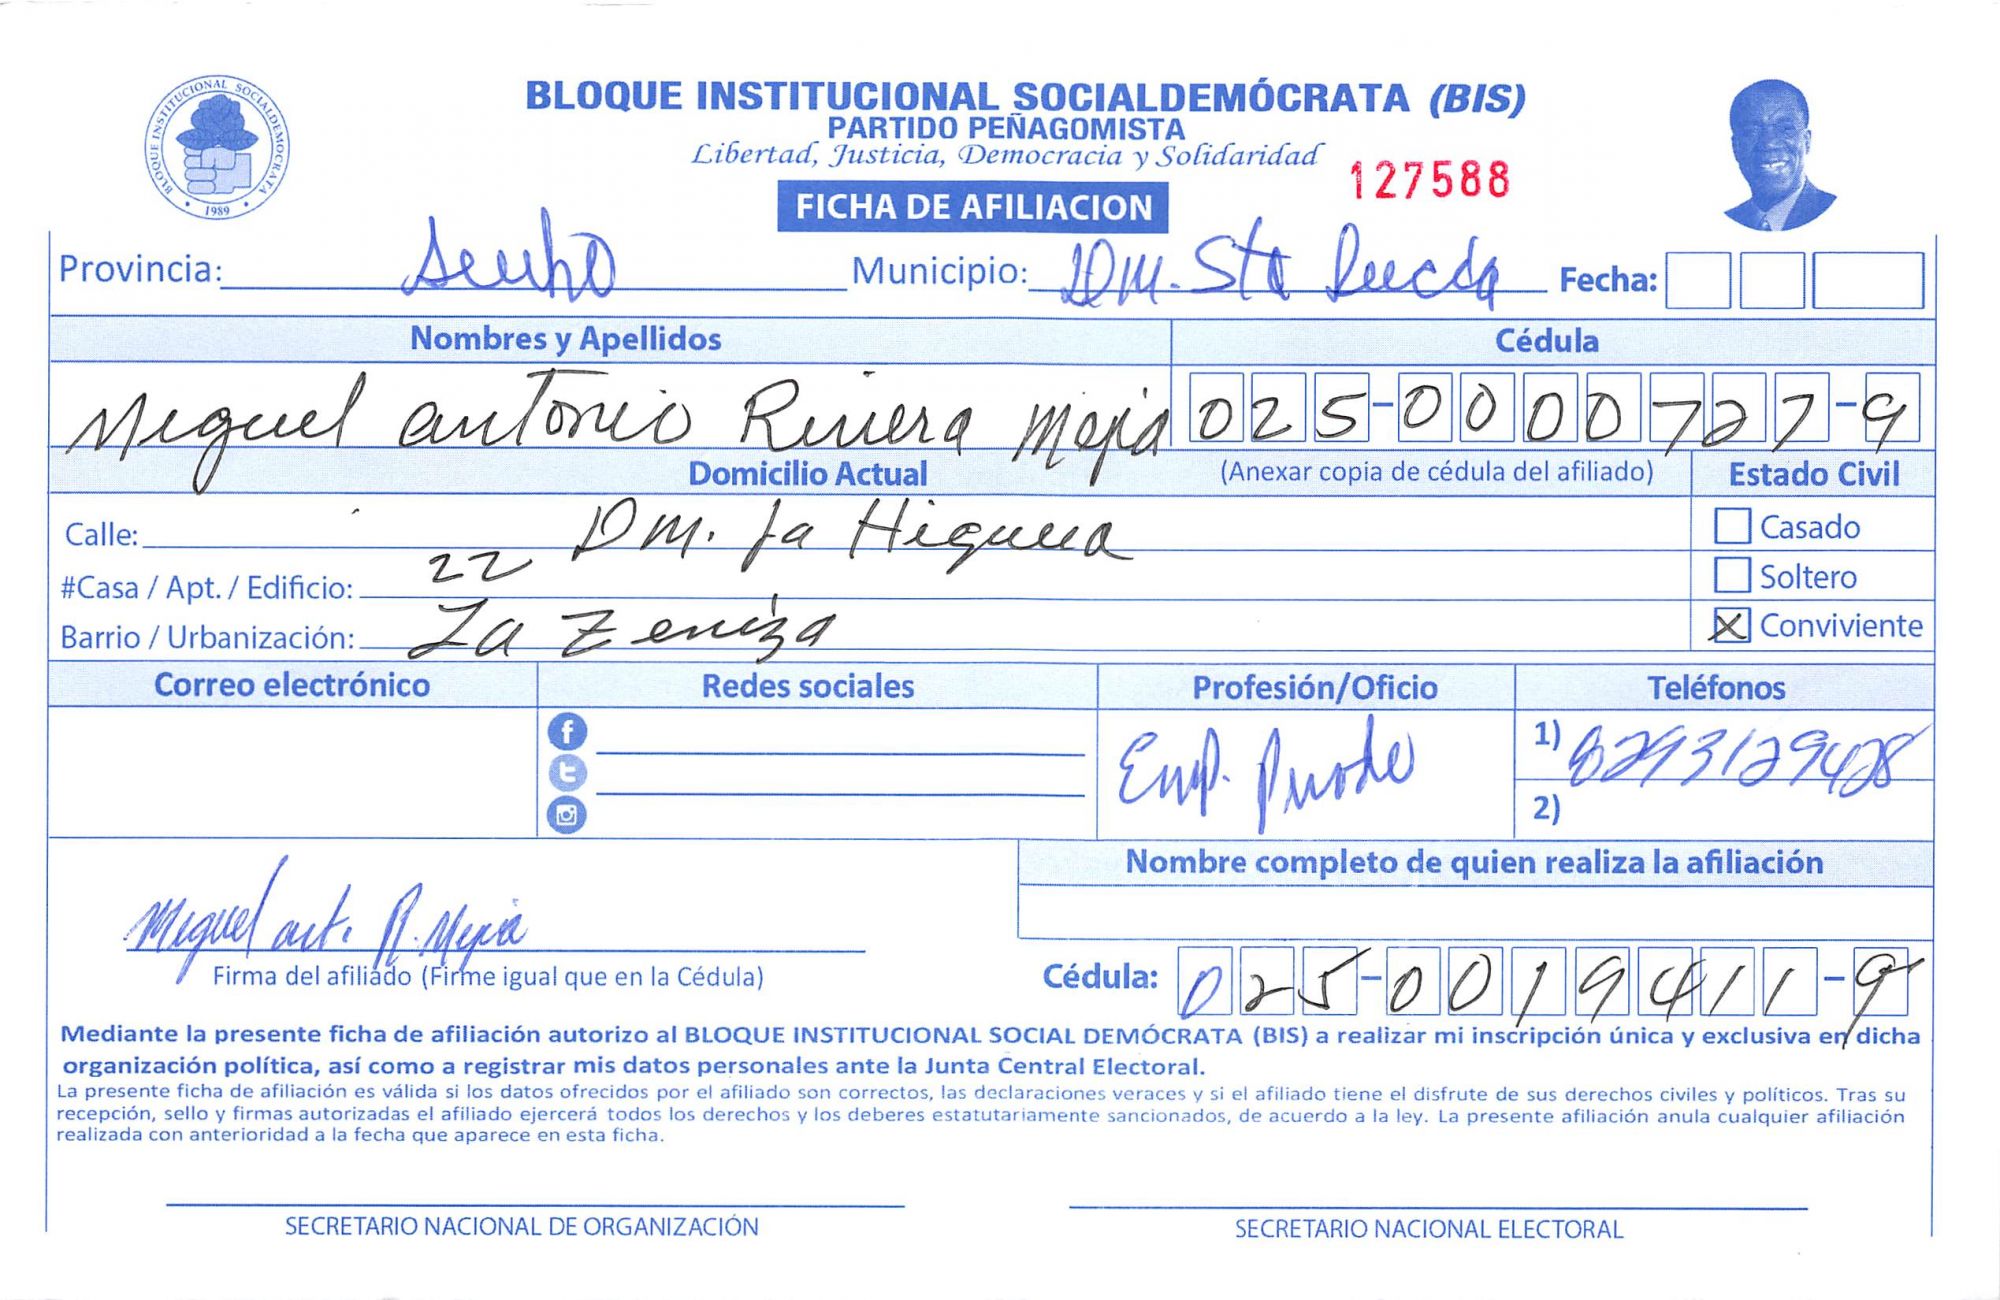 BLOQUE INSTITUCIONAL SOCIALDEMÓCRATA
1989
BLOQUE INSTITUCIONAL SOCIALDEMÓCRATA (BIS)
PARTIDO PEÑAGOMISTA
Libertad, Justicia, Democracia y Solidaridad
127588
FICHA DE AFILIACION
Provincia: Municipio: DM. Sta Fecha:
Nombres y Apellidos Cédula
Miguel antonio Rivera Mejia 025-0000727-9
Domicilio Actual (Anexar copia de cédula del afiliado) Estado Civil
Calle: DM. La Higuera Casado
#Casa / Apt. / Edificio: 22 Soltero
Barrio / Urbanización: La Zeniza X Conviviente
Correo electrónico Redes sociales Profesión/Oficio Teléfonos
Emp. 1) 8293129428
2)
Nombre completo de quien realiza la afiliación
Miguel ant. R. Mejia
Firma del afiliado (Firme igual que en la Cédula) Cédula: 025-0019411-9
Mediante la presente ficha de afiliación autorizo al BLOQUE INSTITUCIONAL SOCIAL DEMÓCRATA (BIS) a realizar mi inscripción única y exclusiva en dicha
organización política, así como a registrar mis datos personales ante la Junta Central Electoral.
La presente ficha de afiliación es válida si los datos ofrecidos por el afiliado son correctos, las declaraciones veraces y si el afiliado tiene el disfrute de sus derechos civiles y políticos. Tras su
recepción, sello y firmas autorizadas el afiliado ejercerá todos los derechos y los deberes estatutariamente sancionados, de acuerdo a la ley. La presente afiliación anula cualquier afiliación
realizada con anterioridad a la fecha que aparece en esta ficha.
SECRETARIO NACIONAL DE ORGANIZACIÓN SECRETARIO NACIONAL ELECTORAL